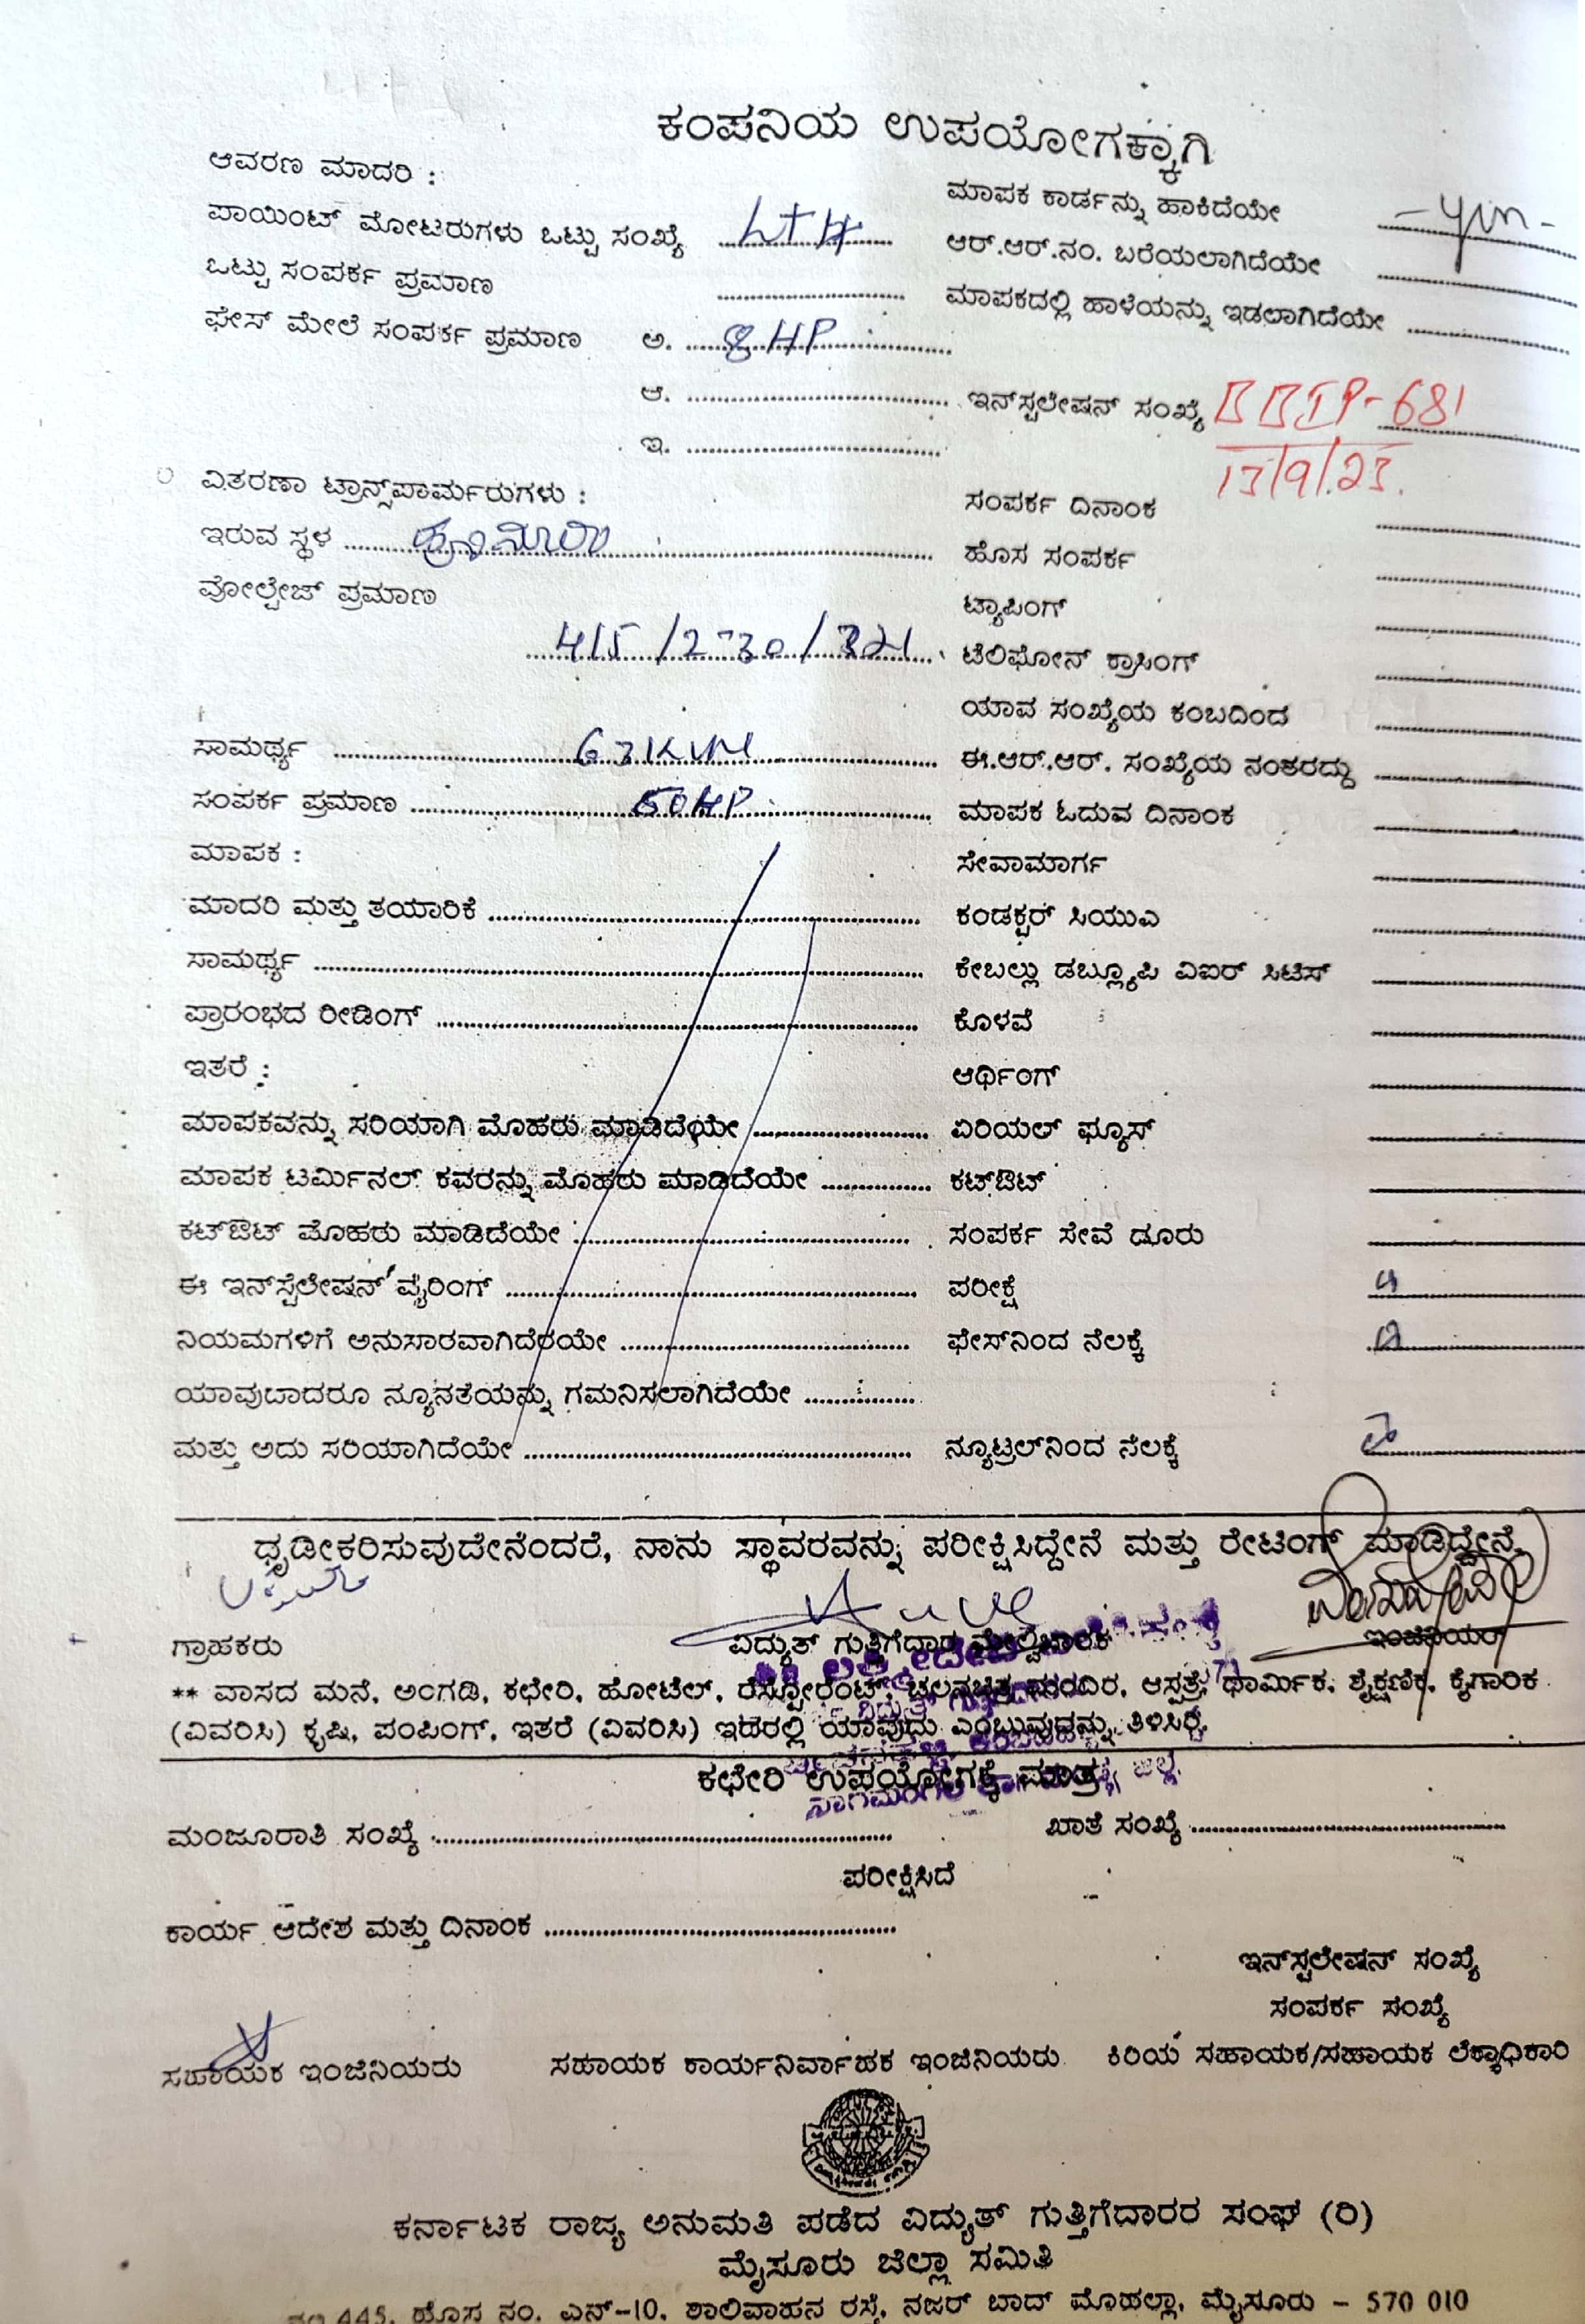 ಕಂಪನಿಯ ಉಪಯೋಗಕ್ಕಾಗಿ
ಆವರಣ ಮಾದರಿ :
ಪಾಯಿಂಟ್ ಮೋಟರುಗಳು ಒಟ್ಟು ಸಂಖ್ಯೆ
ಒಟ್ಟು ಸಂಪರ್ಕ ಪ್ರಮಾಣ
ಫೇಸ್ ಮೇಲೆ ಸಂಪರ್ಕ ಪ್ರಮಾಣ ಅ. 8 HP
ಆ.
ಇ.
ವಿತರಣಾ ಟ್ರಾನ್ಸ್‌ಪಾರ್ಮರುಗಳು :
ಇರುವ ಸ್ಥಳ
ವೋಲ್ಟೇಜ್ ಪ್ರಮಾಣ
415 / 230 /
ಸಾಮರ್ಥ್ಯ 63
ಸಂಪರ್ಕ ಪ್ರಮಾಣ 50 HP
ಮಾಪಕ :
ಮಾದರಿ ಮತ್ತು ತಯಾರಿಕೆ
ಸಾಮರ್ಥ್ಯ
ಪ್ರಾರಂಭದ ರೀಡಿಂಗ್
ಇತರೆ :
ಮಾಪಕವನ್ನು ಸರಿಯಾಗಿ ಮೊಹರು ಮಾಡಿದೆಯೇ
ಮಾಪಕ ಟರ್ಮಿನಲ್ ಕವರನ್ನು ಮೊಹರು ಮಾಡಿದೆಯೇ
ಕಟ್‌ಔಟ್ ಮೊಹರು ಮಾಡಿದೆಯೇ
ಈ ಇನ್‌ಸ್ಟಲೇಷನ್ ವೈರಿಂಗ್
ನಿಯಮಗಳಿಗೆ ಅನುಸಾರವಾಗಿದೆರಯೇ
ಯಾವುದಾದರೂ ನ್ಯೂನತೆಯನ್ನು ಗಮನಿಸಲಾಗಿದೆಯೇ
ಮತ್ತು ಅದು ಸರಿಯಾಗಿದೆಯೇ
ಮಾಪಕ ಕಾರ್ಡನ್ನು ಹಾಕಿದೆಯೇ
ಆರ್.ಆರ್.ನಂ. ಬರೆಯಲಾಗಿದೆಯೇ
ಮಾಪಕದಲ್ಲಿ ಹಾಳೆಯನ್ನು ಇಡಲಾಗಿದೆಯೇ
ಇನ್‌ಸ್ಟಲೇಷನ್ ಸಂಖ್ಯೆ BBIP-681
13/9/23.
ಸಂಪರ್ಕ ದಿನಾಂಕ
ಹೊಸ ಸಂಪರ್ಕ
ಟ್ಯಾಪಿಂಗ್
ಟೆಲಿಫೋನ್ ಕ್ರಾಸಿಂಗ್
ಯಾವ ಸಂಖ್ಯೆಯ ಕಂಬದಿಂದ
ಈ.ಆರ್.ಆರ್. ಸಂಖ್ಯೆಯ ನಂತರದ್ದು
ಮಾಪಕ ಓದುವ ದಿನಾಂಕ
ಸೇವಾಮಾರ್ಗ
ಕಂಡಕ್ಟರ್ ಸಿಯುಎ
ಕೇಬಲ್ಲು ಡಬ್ಲ್ಯೂಪಿ ವಿಐರ್ ಸಿಟಿಸ್
ಕೊಳವೆ
ಆರ್ಥಿಂಗ್
ಏರಿಯಲ್ ಫ್ಯೂಸ್
ಕಟ್‌ಔಟ್
ಸಂಪರ್ಕ ಸೇವೆ ಡೂರು
ಪರೀಕ್ಷೆ
ಫೇಸ್‌ನಿಂದ ನೆಲಕ್ಕೆ
ನ್ಯೂಟ್ರಲ್‌ನಿಂದ ನೆಲಕ್ಕೆ
ಧೃಡೀಕರಿಸುವುದೇನೆಂದರೆ, ನಾನು ಸ್ಥಾವರವನ್ನು ಪರೀಕ್ಷಿಸಿದ್ದೇನೆ ಮತ್ತು ರೇಟಿಂಗ್ ಮಾಡಿದ್ದೇನೆ.
ಗ್ರಾಹಕರು ವಿದ್ಯುತ್ ಗುತ್ತಿಗೆದಾರ ಮೇಲ್ವಿಚಾರಕ ಇಂಜಿನಿಯರ್
** ವಾಸದ ಮನೆ, ಅಂಗಡಿ, ಕಛೇರಿ, ಹೋಟೆಲ್, ರೆಸ್ಟೋರೆಂಟ್, ಚಲನಚಿತ್ರ ಮಂದಿರ, ಆಸ್ಪತ್ರೆ, ಧಾರ್ಮಿಕ, ಶೈಕ್ಷಣಿಕ, ಕೈಗಾರಿಕ
(ವಿವರಿಸಿ) ಕೃಷಿ, ಪಂಪಿಂಗ್, ಇತರೆ (ವಿವರಿಸಿ) ಇದರಲ್ಲಿ ಯಾವುದು ಎಂಬುವುದನ್ನು ತಿಳಿಸಿರಿ.
ಕಛೇರಿ ಉಪಯೋಗಕ್ಕೆ ಮಾತ್ರ
ಮಂಜೂರಾತಿ ಸಂಖ್ಯೆ ಖಾತೆ ಸಂಖ್ಯೆ
ಪರೀಕ್ಷಿಸಿದೆ
ಕಾರ್ಯ ಆದೇಶ ಮತ್ತು ದಿನಾಂಕ
ಇನ್‌ಸ್ಟಲೇಷನ್ ಸಂಖ್ಯೆ
ಸಂಪರ್ಕ ಸಂಖ್ಯೆ
ಸಹಾಯಕ ಇಂಜಿನಿಯರು ಸಹಾಯಕ ಕಾರ್ಯನಿರ್ವಾಹಕ ಇಂಜಿನಿಯರು ಕಿರಿಯ ಸಹಾಯಕ/ಸಹಾಯಕ ಲೆಕ್ಕಾಧಿಕಾರಿ
ಕರ್ನಾಟಕ ರಾಜ್ಯ ಅನುಮತಿ ಪಡೆದ ವಿದ್ಯುತ್ ಗುತ್ತಿಗೆದಾರರ ಸಂಘ (ರಿ)
ಮೈಸೂರು ಜಿಲ್ಲಾ ಸಮಿತಿ
445, ಹೊಸ ನಂ. ಎನ್-10, ಶಾಲಿವಾಹನ ರಸ್ತೆ, ನಜರ್ ಬಾದ್ ಮೊಹಲ್ಲಾ, ಮೈಸೂರು - 570 010